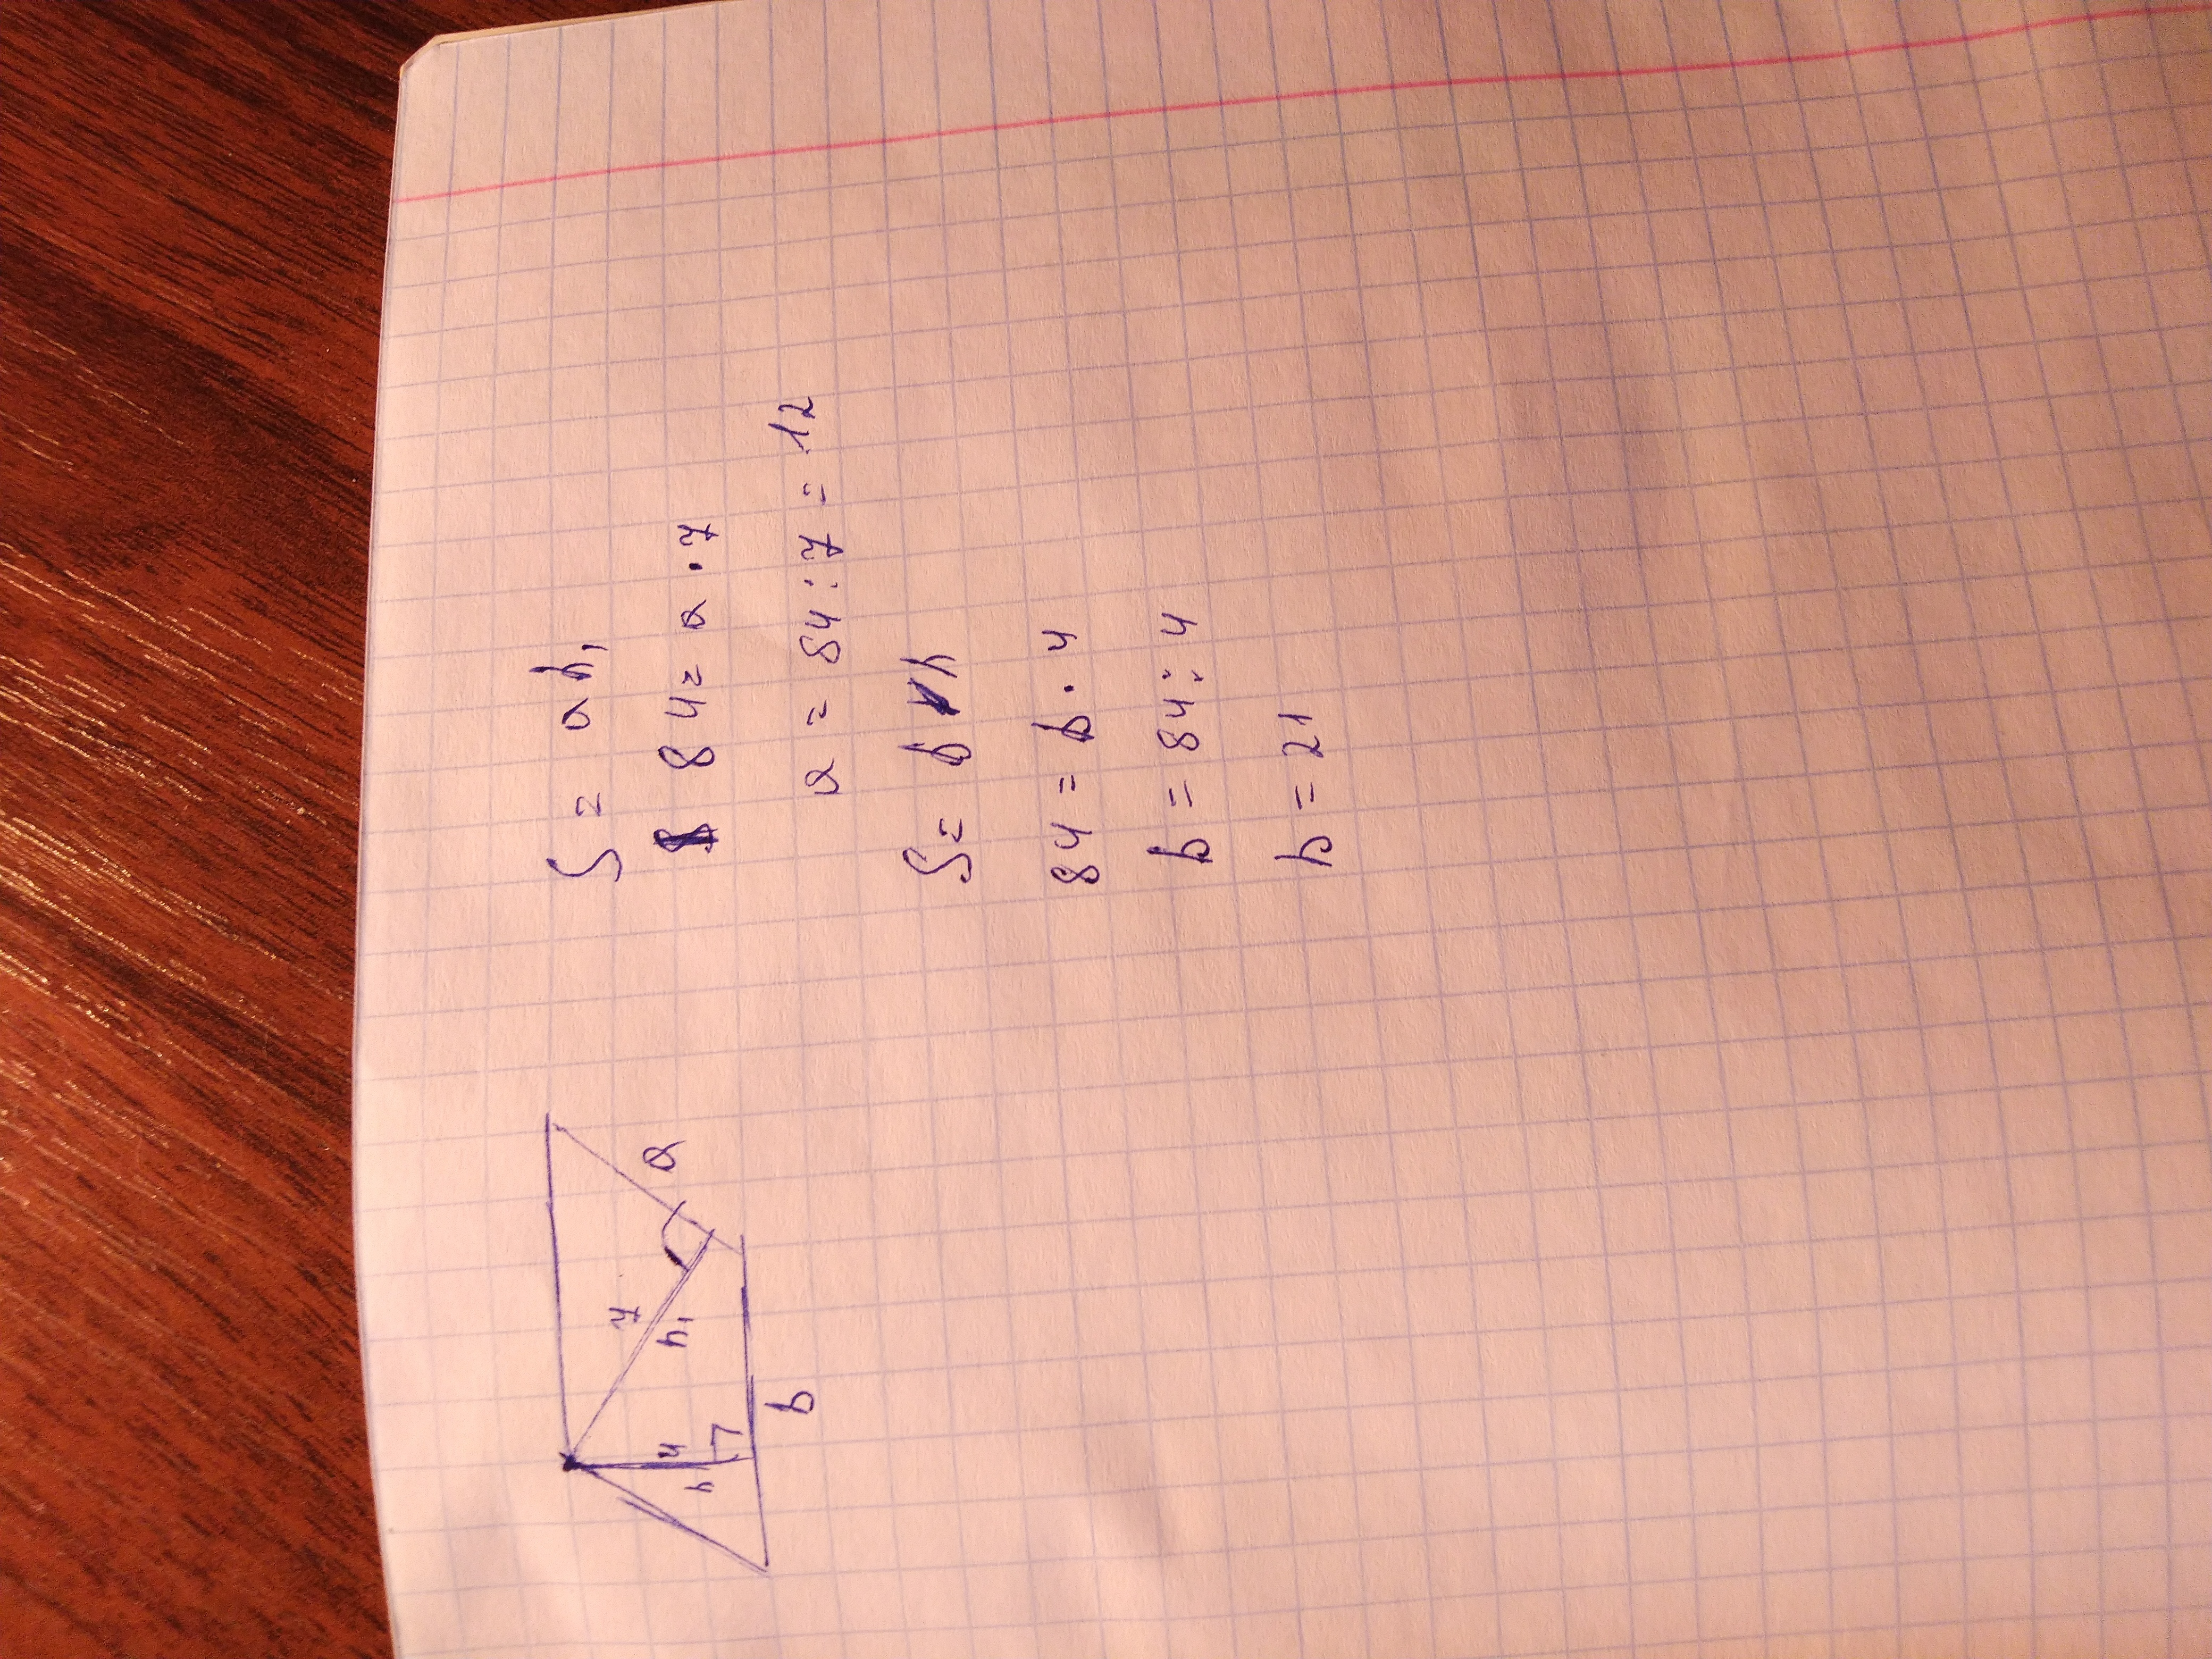 S = ah₁
84 = a · 7
a = 84 : 7 = 12
S = b h
84 = b · 4
b = 84 : 4
b = 21
7
h₁
a
4
h
b